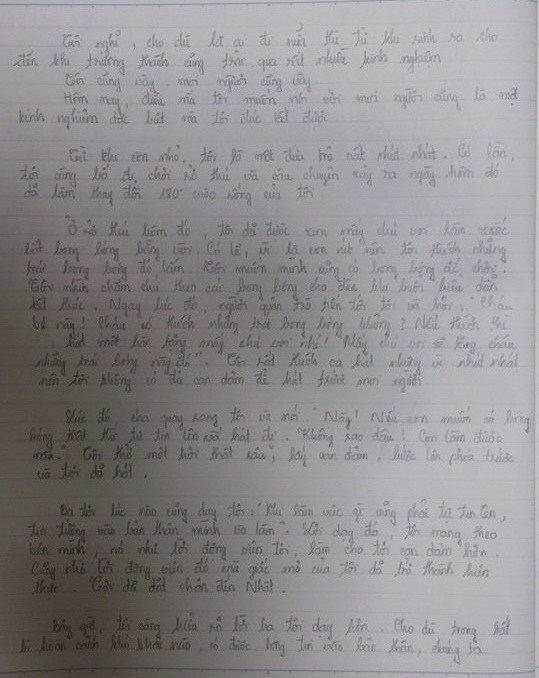 Tôi nghĩ, cho dù là ai đi nữa thì từ khi sinh ra cho
đến khi trưởng thành cũng trải qua rất nhiều kinh nghiệm
Tôi cũng vậy. mọi người cũng vậy
Hôm nay, điều mà tôi muốn nói với mọi người cũng là một
kinh nghiệm đặc biệt mà tôi đúc kết được.
Từ khi còn nhỏ, tôi là một đứa trẻ rất nhút nhát. Có lần,
tôi cùng bố đi chơi sở thú và câu chuyện xảy ra ngày hôm đó
đã làm thay đổi 180° cuộc sống của tôi
Ở sở thú hôm đó, tôi đã được xem mấy chú voi làm xiếc
bắt bong bóng bằng vòi. Có lẽ, vì là con nít nên tôi thích những
trái bong bóng đó lắm. Tôi muốn mình cũng có bong bóng để chơi.
Tôi nhìn chăm chú theo cái bong bóng cho đến khi buổi biểu diễn
kết thúc. Ngay lúc đó, người quản trò tiến tới tôi và hỏi: "Cháu
bé này! Cháu có thích những trái bong bóng không? Nếu thích thì
hát một bài tặng mấy chú voi nhé! Mấy chú voi sẽ tặng cháu
những trái bóng này đó". Tôi rất thích ca hát nhưng vì nhút nhát
nên tôi không có đủ can đảm để hát trước mọi người.
Lúc đó, cha quay sang tôi và nói. "Này! Nếu con muốn có bong
bóng thật thì tự tin lên và hát đi. "Không sao đâu! Con làm được
mà." Tôi thở một hơi thật sâu, lấy can đảm, bước lên phía trước
và tôi đã hát.
Ba tôi lúc nào cũng dạy tôi: "Khi làm việc gì cũng phải tự tin lên,
tin tưởng vào bản thân mình và làm". Lời dạy đó, tôi mang theo
bên mình, nó như lời động viên tôi, làm cho tôi can đảm hơn.
Cũng nhờ lời động viên đó mà giấc mơ của tôi đã trở thành hiện
thực. Tôi đã đặt chân đến Nhật.
Bây giờ, tôi càng hiểu rõ lời ba tôi dạy hơn. Cho dù trong bất
kì hoàn cảnh khó khăn nào, có được lòng tin vào bản thân, đứng ra